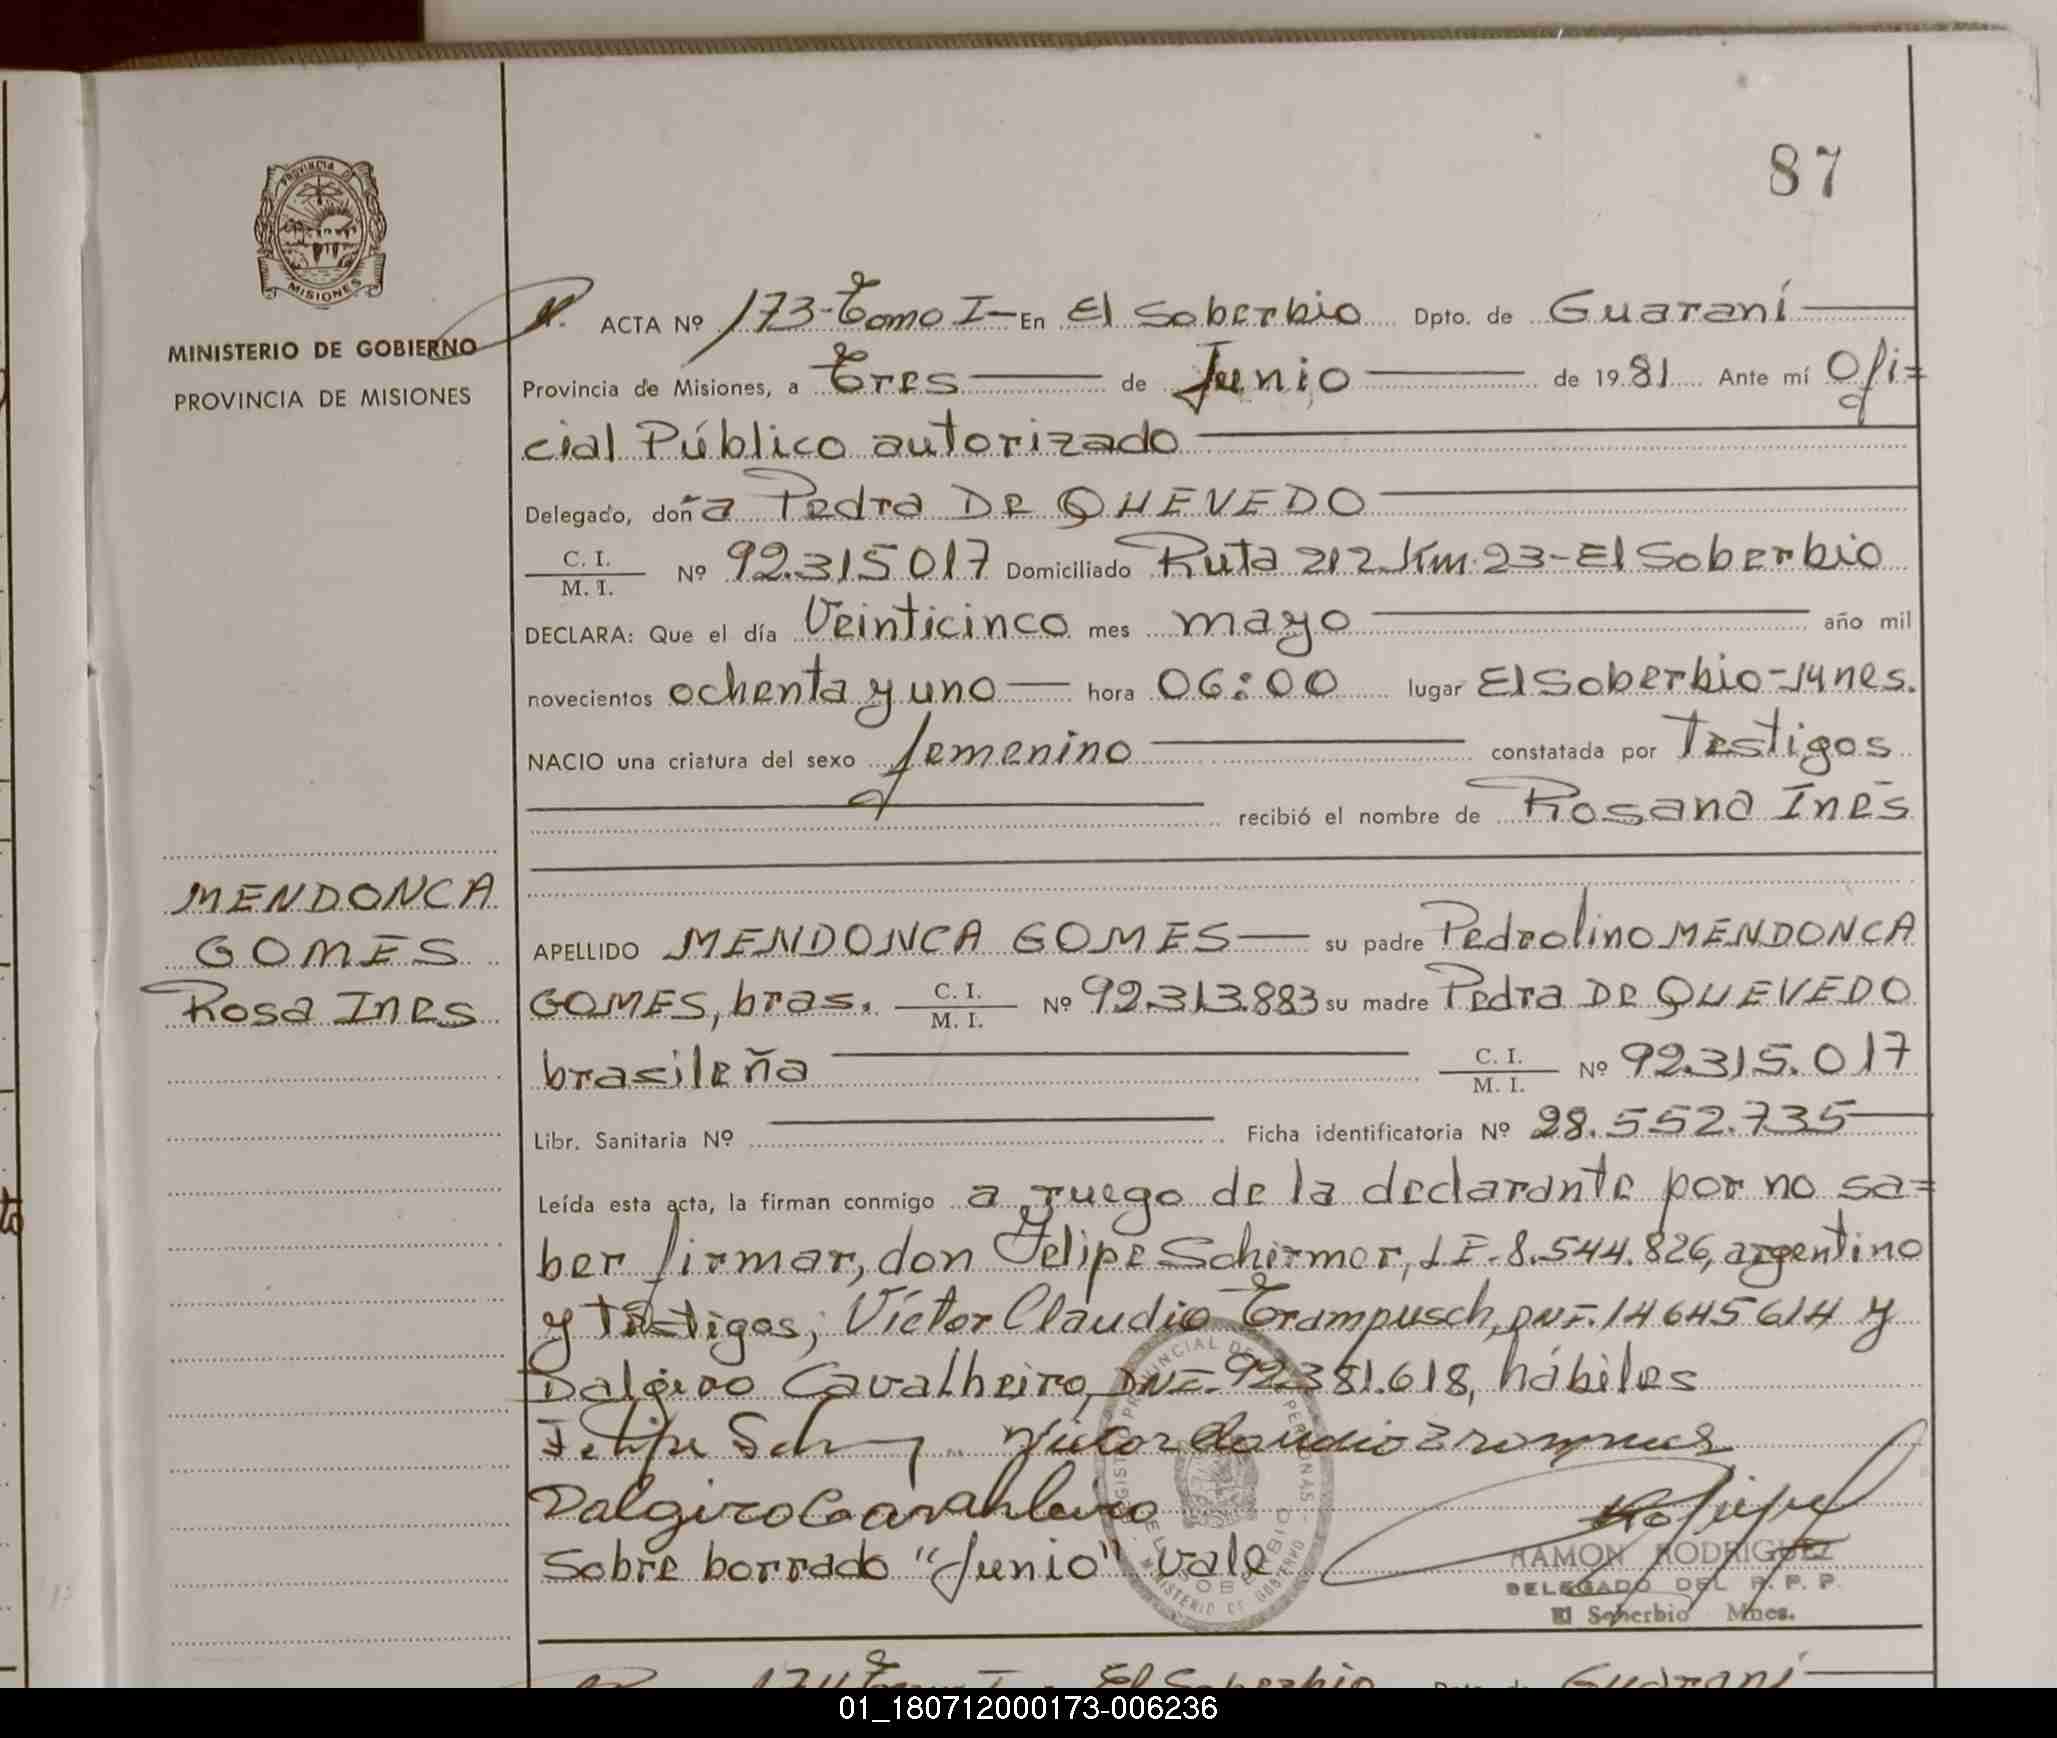 87
PROVINCIA DE
MISIONES
MINISTERIO DE GOBIERNO
PROVINCIA DE MISIONES
N. ACTA Nº 173-Tomo I- En El Soberbio Dpto. de Guaraní
Provincia de Misiones, a Tres de Junio de 1981 Ante mí Ofi=
cial Público autorizado
Delegado, doña Pedra DE QUEVEDO
C. I.
M. I. Nº 92.315017 Domiciliado Ruta 212 Km. 23-El Soberbio
DECLARA: Que el día Veinticinco mes mayo año mil
novecientos ochenta y uno hora 06:00 lugar El Soberbio-Mnes.
NACIO una criatura del sexo femenino constatada por Testigos
recibió el nombre de Rosana Inés
MENDONCA
GOMES
Rosa Ines
APELLIDO MENDONCA GOMES su padre Pedrolino MENDONCA
GOMES, bras. C. I.
M. I. Nº 92.313.883 su madre Pedra DE QUEVEDO
brasileña C. I.
M. I. Nº 92.315.017
Libr. Sanitaria Nº Ficha identificatoria Nº 28.552.735
Leída esta acta, la firman conmigo a ruego de la declarante por no sa=
ber firmar, don Felipe Schirmer, LE-8.544.826, argentino
y testigos; Víctor Claudio Trampusch, DNI-14645614 y
Dalgiro Cavalheiro, DNI-92.381.618, hábiles
Felipe
Victor Claudio
Dalgiro
Sobre borrado "Junio" vale
RAMON RODRIGUEZ
DELEGADO DEL R. P. P.
El Soberbio Mnes.
174 Tomo I- El Soberbio Guaraní
01_180712000173-006236